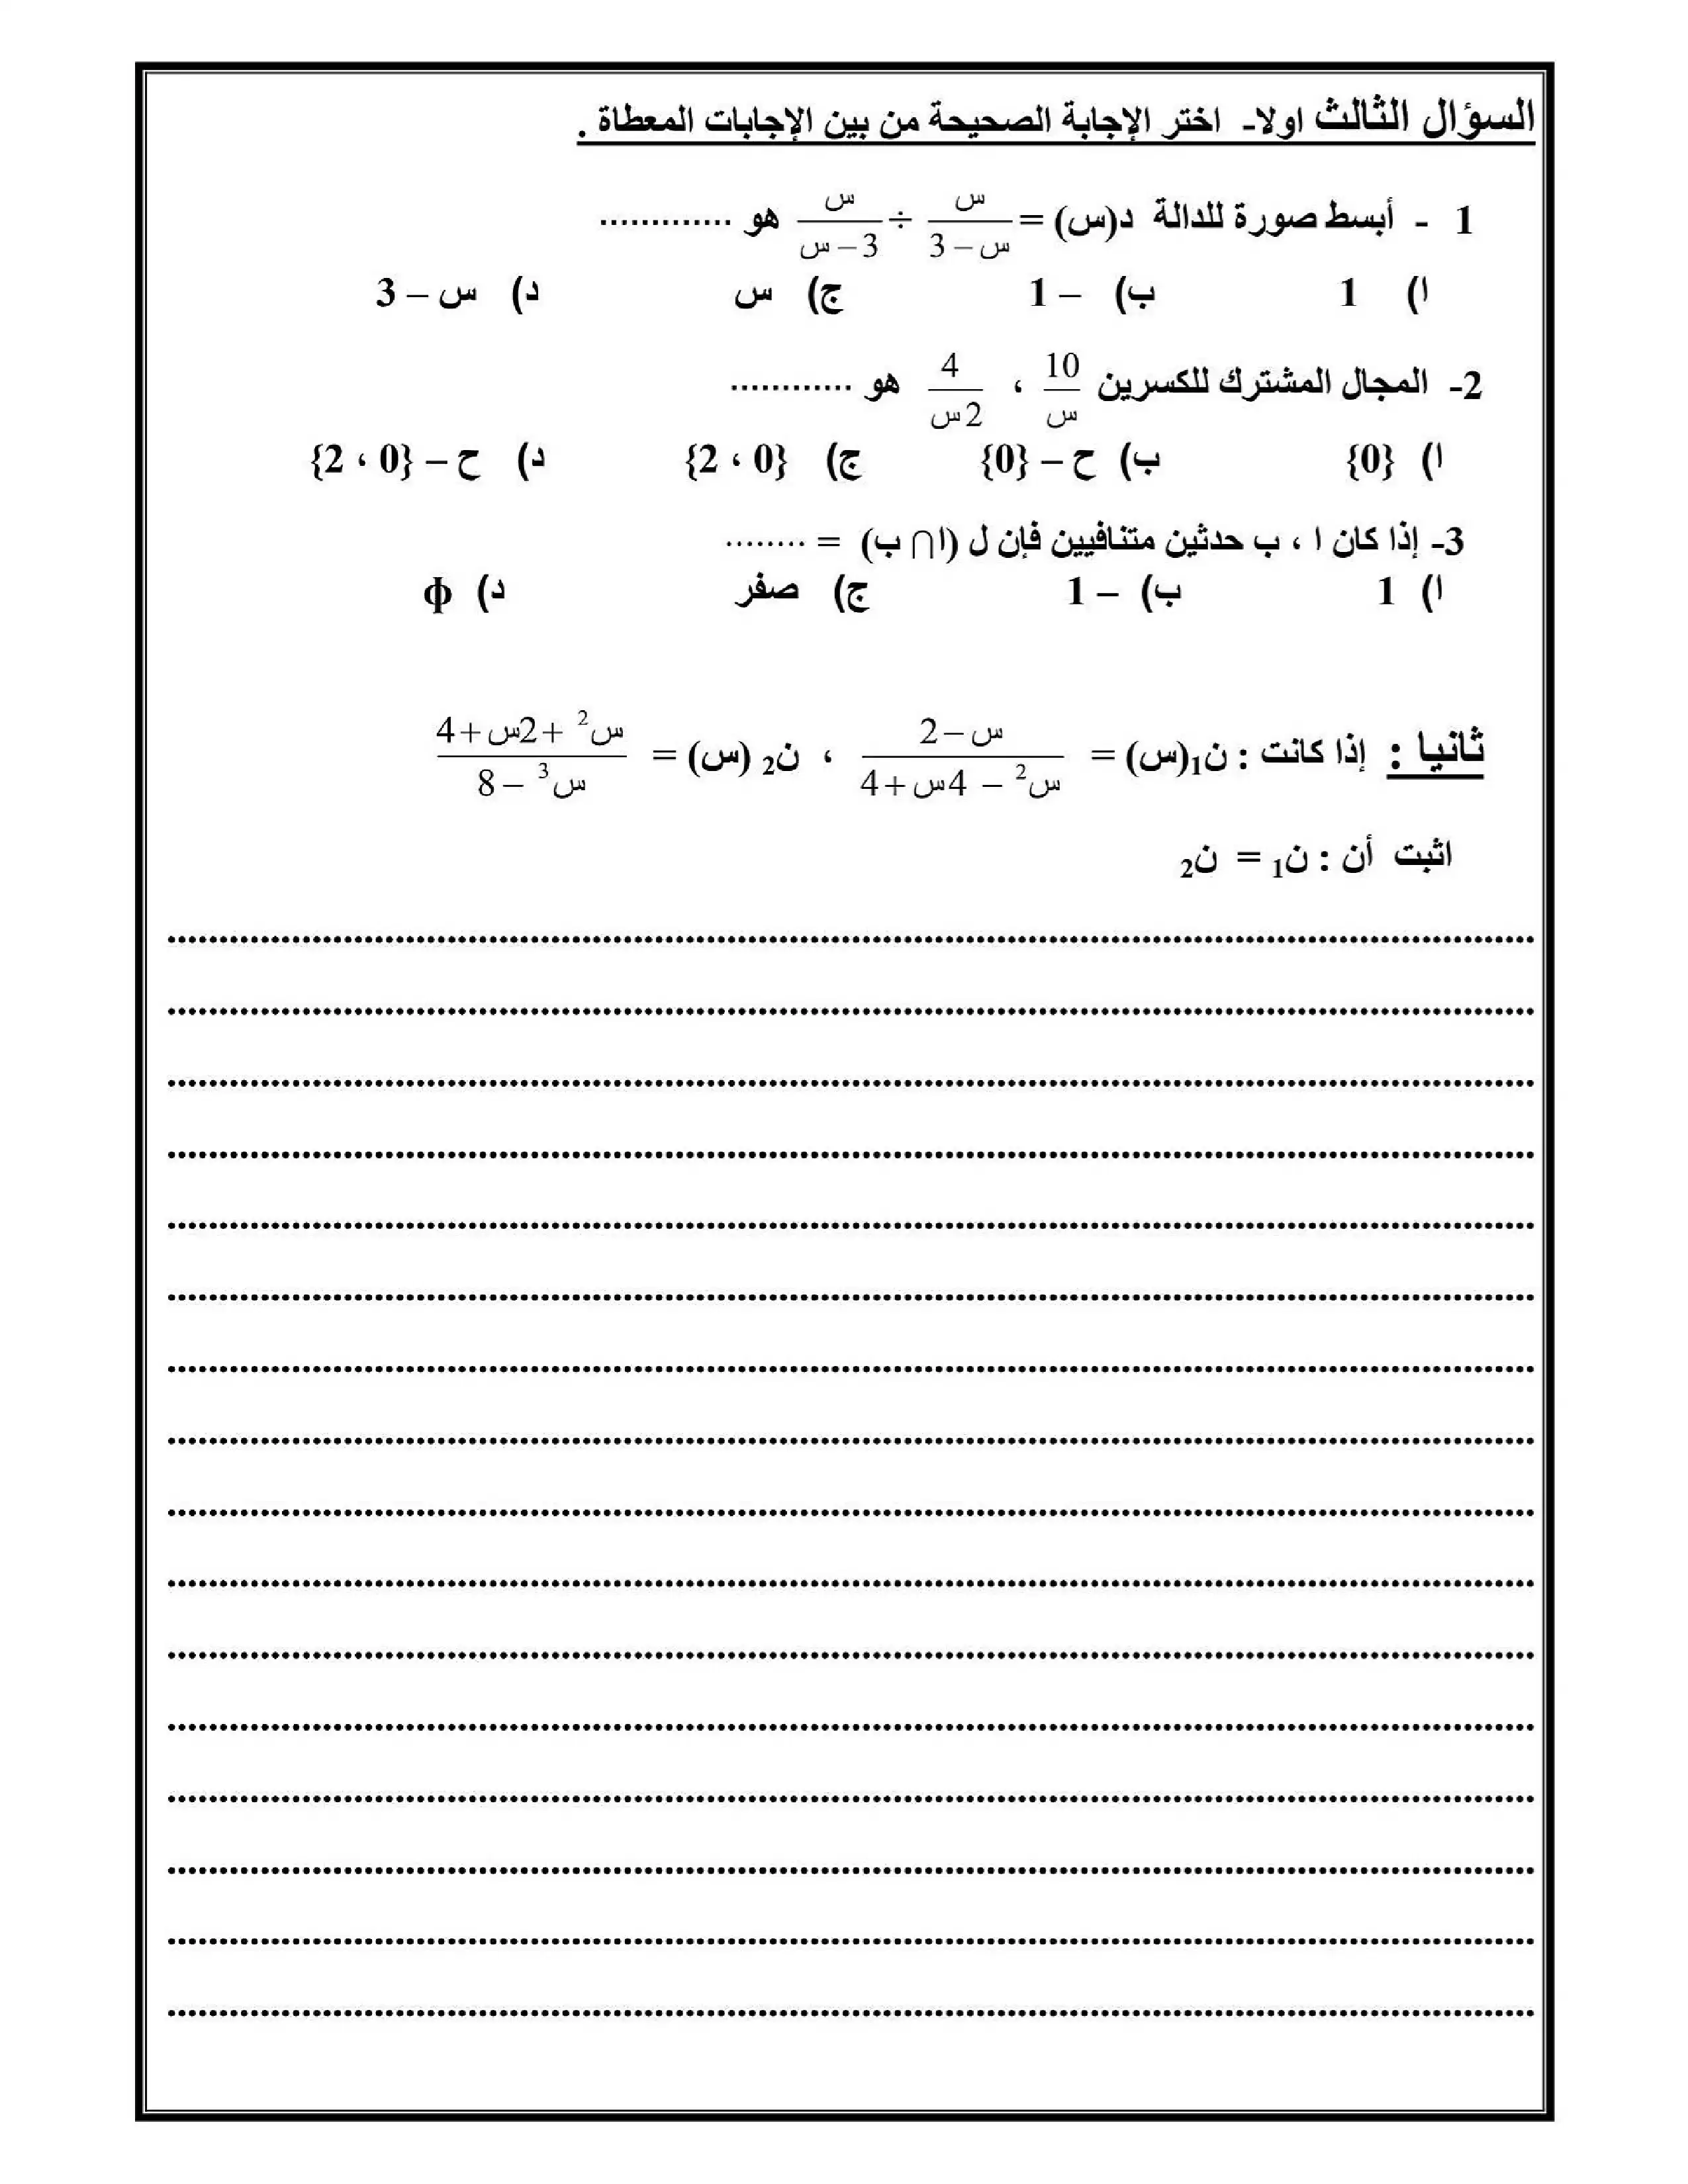 السؤال الثالث اولا- اختر الإجابة الصحيحة من بين الإجابات المعطاة .
1 - أبسط صورة للدالة د(س) = س / (س – 3) ÷ س / (3 – س) هو .............
ا) 1 ب) – 1 ج) س د) س – 3
2- المجال المشترك للكسرين 10 / س ، 4 / 2س هو ............
ا) {0} ب) ح – {0} ج) {0 ، 2} د) ح – {0 ، 2}
3- إذا كان ا ، ب حدثين متنافيين فإن ل (ا ∩ ب) = ........
ا) 1 ب) – 1 ج) صفر د) ф
ثانيا : إذا كانت : ن₁(س) = (س – 2) / (س² – 4س + 4) ، ن₂ (س) = (س² + 2س + 4) / (س³ – 8)
اثبت أن : ن₁ = ن₂